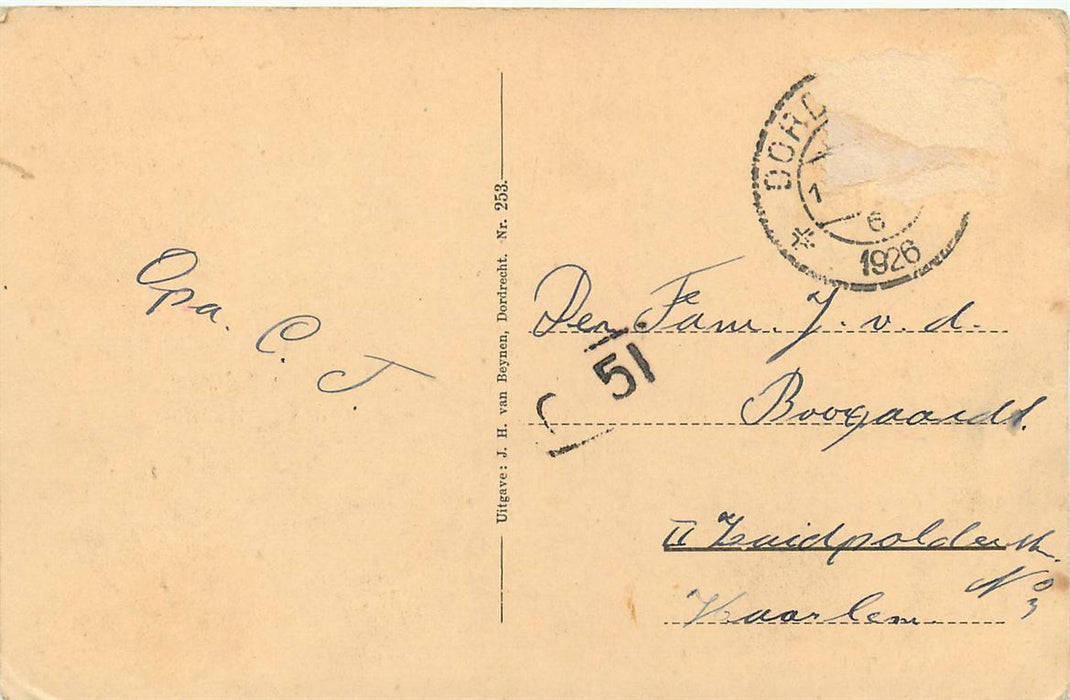 Opa.
C.
J.
Uitgave: J. H. van Beynen, Dordrecht. Nr. 253.
DORD
1
6
1926
51
Den Fam. J. v. d.
Boogaardt.
II Zuidpolderstr.
No 3
Haarlem.